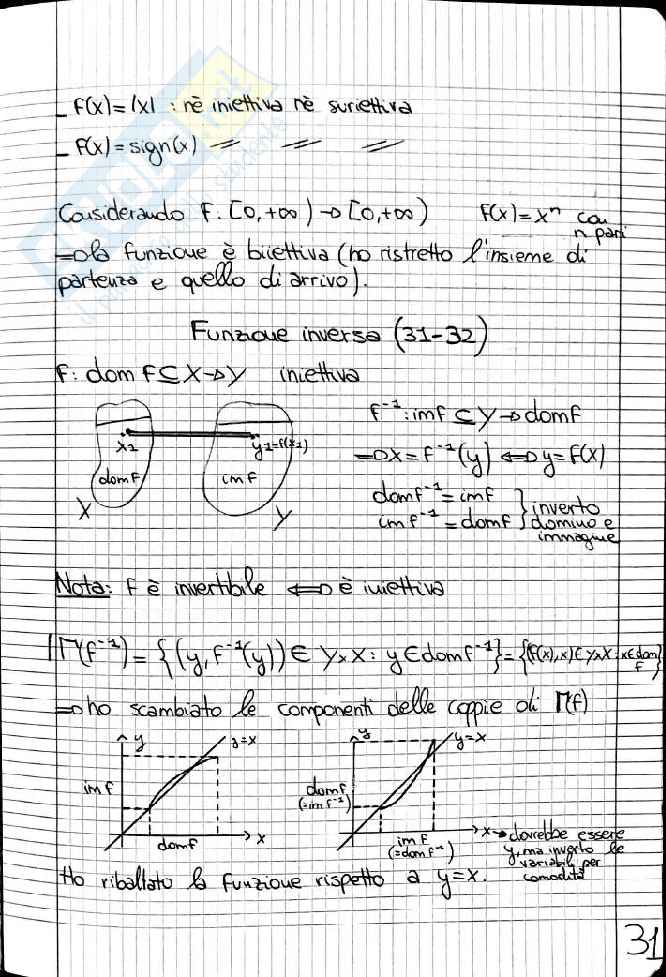 _ f(x)=|x| : nè iniettiva nè suriettiva
_ f(x)=sign(x) = = =
Considerando f: [0,+∞) → [0,+∞) f(x)=xⁿ con n pari
⇒ la funzione è biiettiva (ho ristretto l'insieme di
partenza e quello di arrivo).
Funzione inversa (31-32)
f: dom f ⊆ X → Y iniettiva
x1
y1=f(x1)
dom f
im f
X
Y
f⁻¹: im f ⊆ Y → dom f
⇒ x = f⁻¹(y) ⇔ y = f(x)
dom f⁻¹ = im f
im f⁻¹ = dom f
} inverto
dominio e
immagine
Nota: f è invertibile ⇔ è iniettiva
Γ(f⁻¹) = {(y, f⁻¹(y)) ∈ Y×X : y ∈ dom f⁻¹} = {(f(x),x) ∈ Y×X : x ∈ dom f}
⇒ ho scambiato le componenti delle coppie di Γ(f)
y
y=x
im f
dom f
x
y
y=x
dom f
(=im f⁻¹)
im f
(=dom f⁻¹)
x → dovrebbe essere
y, ma inverto le
variabili per
comodità
Ho ribaltato la funzione rispetto a y=x.
31